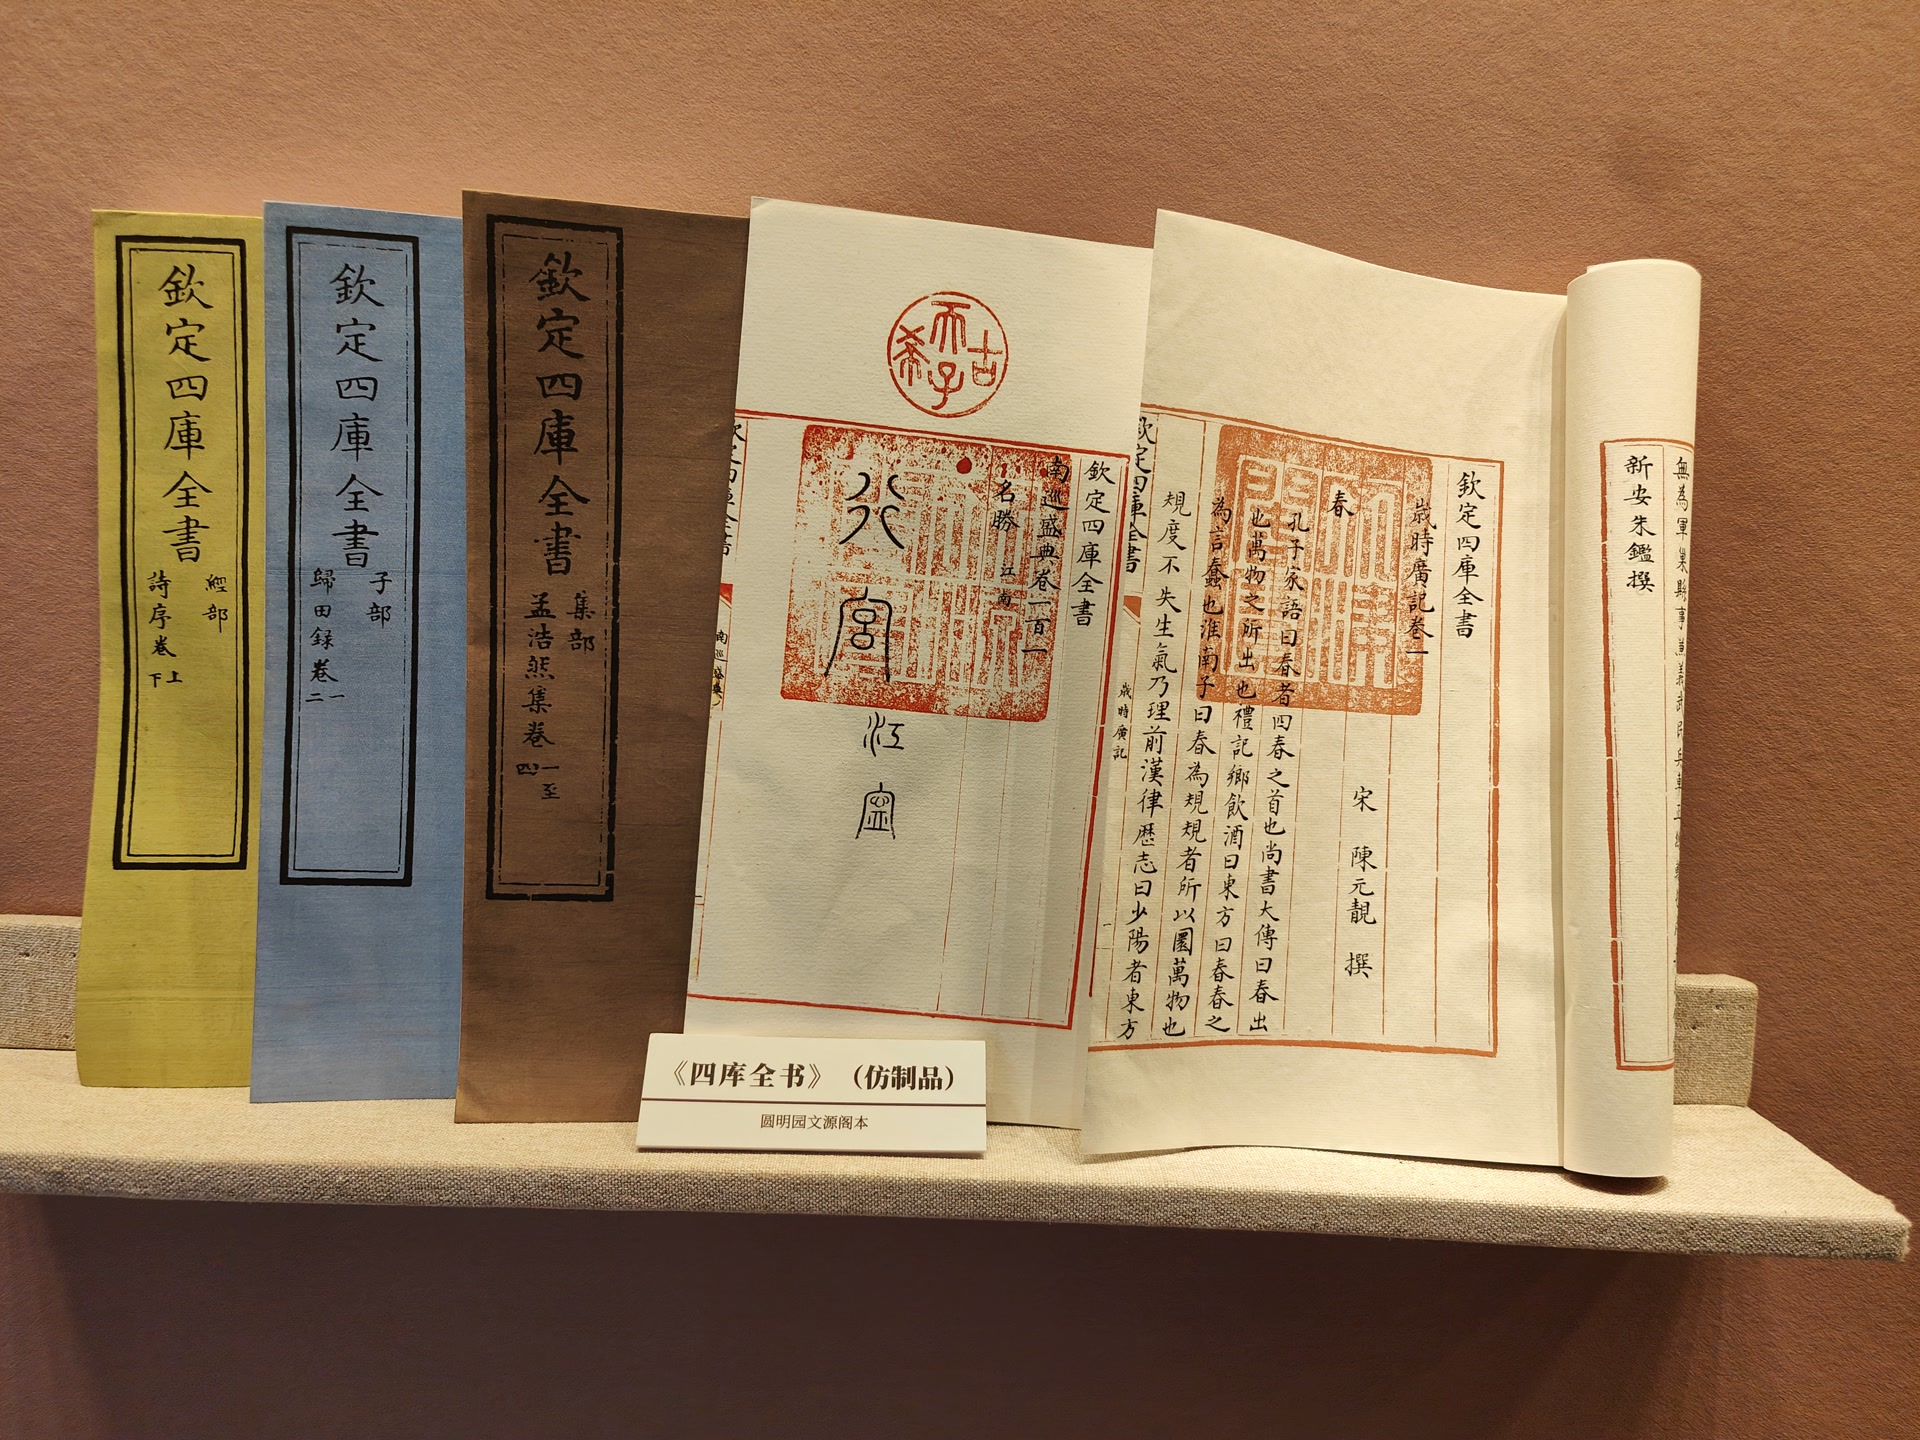 欽定四庫全書
經部
詩序卷上下
欽定四庫全書
子部
歸田録卷一二
欽定四庫全書
集部
孟浩然集卷一至四
古希天子
欽定四庫全書
南巡盛典卷一百一
名勝 江南
行宮
江寧
欽定四庫全書
南巡盛典
《四库全书》（仿制品）
圆明园文源阁本
欽定四庫全書
歲時廣記卷一
宋 陳元靚 撰
春
孔子家語曰春者四春之首也尚書大傳曰春出
也萬物之所出也禮記鄉飲酒曰東方曰春春之
為言蠢也淮南子曰春為規規者所以圜萬物也
規度不失生氣乃理前漢律歷志曰少陽者東方
欽定四庫全書
歲時廣記
一
無為軍巢縣事
新安朱鑑撰